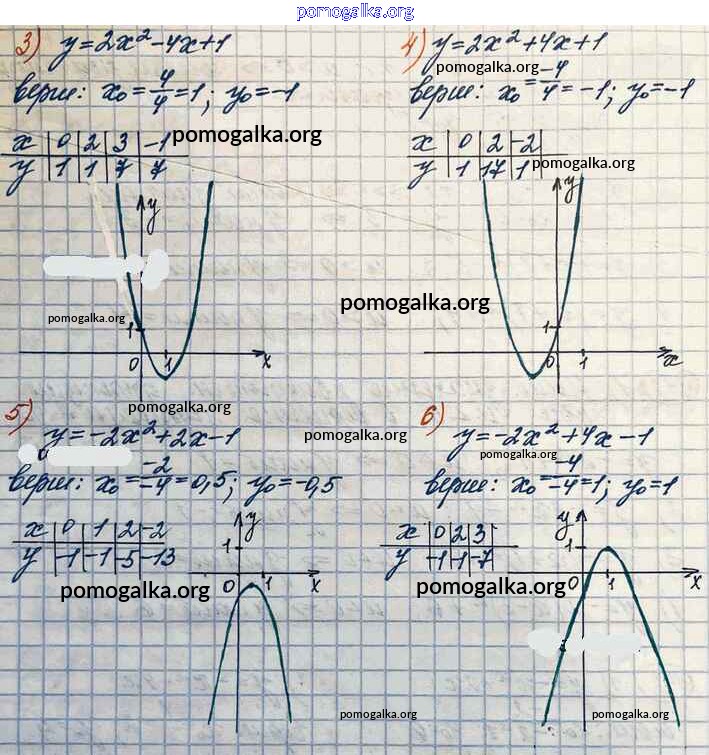 pomogalka.org
3) y=2x²-4x+1
верш: x₀=4/4=1; y₀=-1
x | 0 | 2 | 3 | -1
y | 1 | 1 | 7 | 7
pomogalka.org
y
pomogalka.org
1
0 1 x
4) y=2x²+4x+1
pomogalka.org
верш: x₀=-4/4=-1; y₀=-1
x | 0 | 2 | -2
y | 1 | 17 | 1
pomogalka.org
y
pomogalka.org
1
0 1 x
pomogalka.org
5) y=-2x²+2x-1
pomogalka.org
верш: x₀=-2/-4=0,5; y₀=-0,5
x | 0 | 1 | 2 | -2
y | -1 | -1 | -5 | -13
pomogalka.org
y
1
0 1 x
6) y=-2x²+4x-1
pomogalka.org
верш: x₀=-4/-4=1; y₀=1
x | 0 | 2 | 3
y | -1 | -1 | -7
pomogalka.org
y
1
0 1 x
pomogalka.org
pomogalka.org